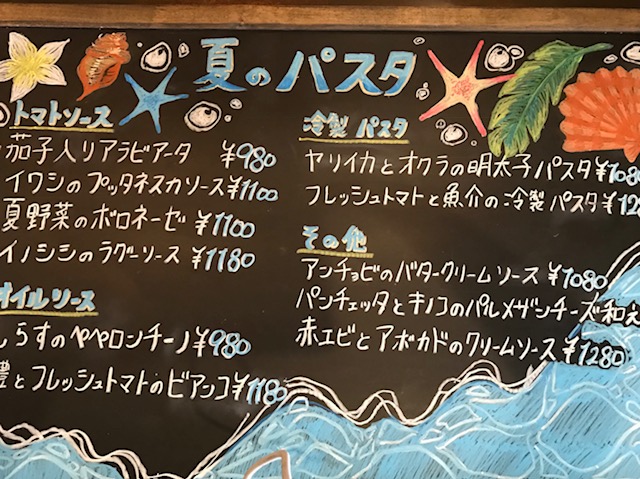 夏のパスタ
トマトソース
茄子入りアラビアータ ¥980
イワシのプッタネスカソース ¥1100
夏野菜のボロネーゼ ¥1100
イノシシのラグーソース ¥1180
オイルソース
しらすのペペロンチーノ ¥980
とフレッシュトマトのビアンコ ¥1180
冷製 パスタ
ヤリイカとオクラの明太子パスタ ¥1080
フレッシュトマトと魚介の冷製パスタ
その他
アンチョビのバタークリームソース ¥1080
パンチェッタとキノコのパルメザンチーズ和え
赤エビとアボカドのクリームソース ¥1280